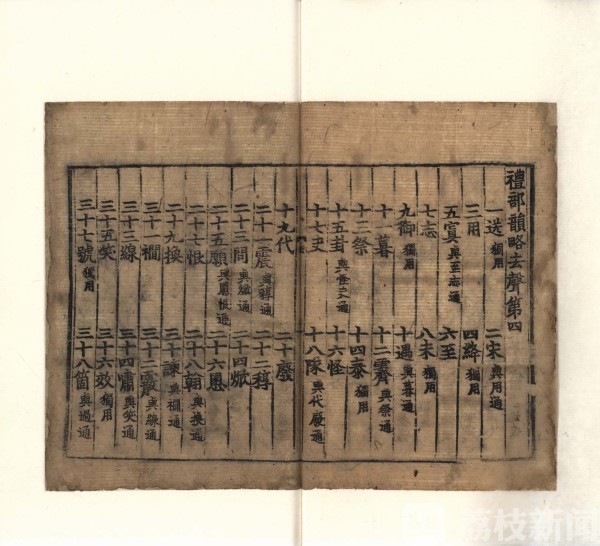 禮部韻略去聲第四
一送獨用 二宋與用通
三用 四絳獨用
五寘與至志通 六至
七志 八未獨用
九御獨用 十遇與暮通
十一暮 十二霽與祭通
十三祭 十四泰獨用
十五卦與怪夬通 十六怪
十七夬 十八隊與代廢通
十九代 二十廢
二十一震與稕通 二十二稕
二十三問與焮通 二十四焮
二十五願與慁恨通 二十六慁
二十七恨 二十八翰與換通
二十九換 三十諫與襉通
三十一襉 三十二霰與線通
三十三線 三十四嘯與笑通
三十五笑 三十六效獨用
三十七號獨用 三十八箇與過通
荔枝新闻